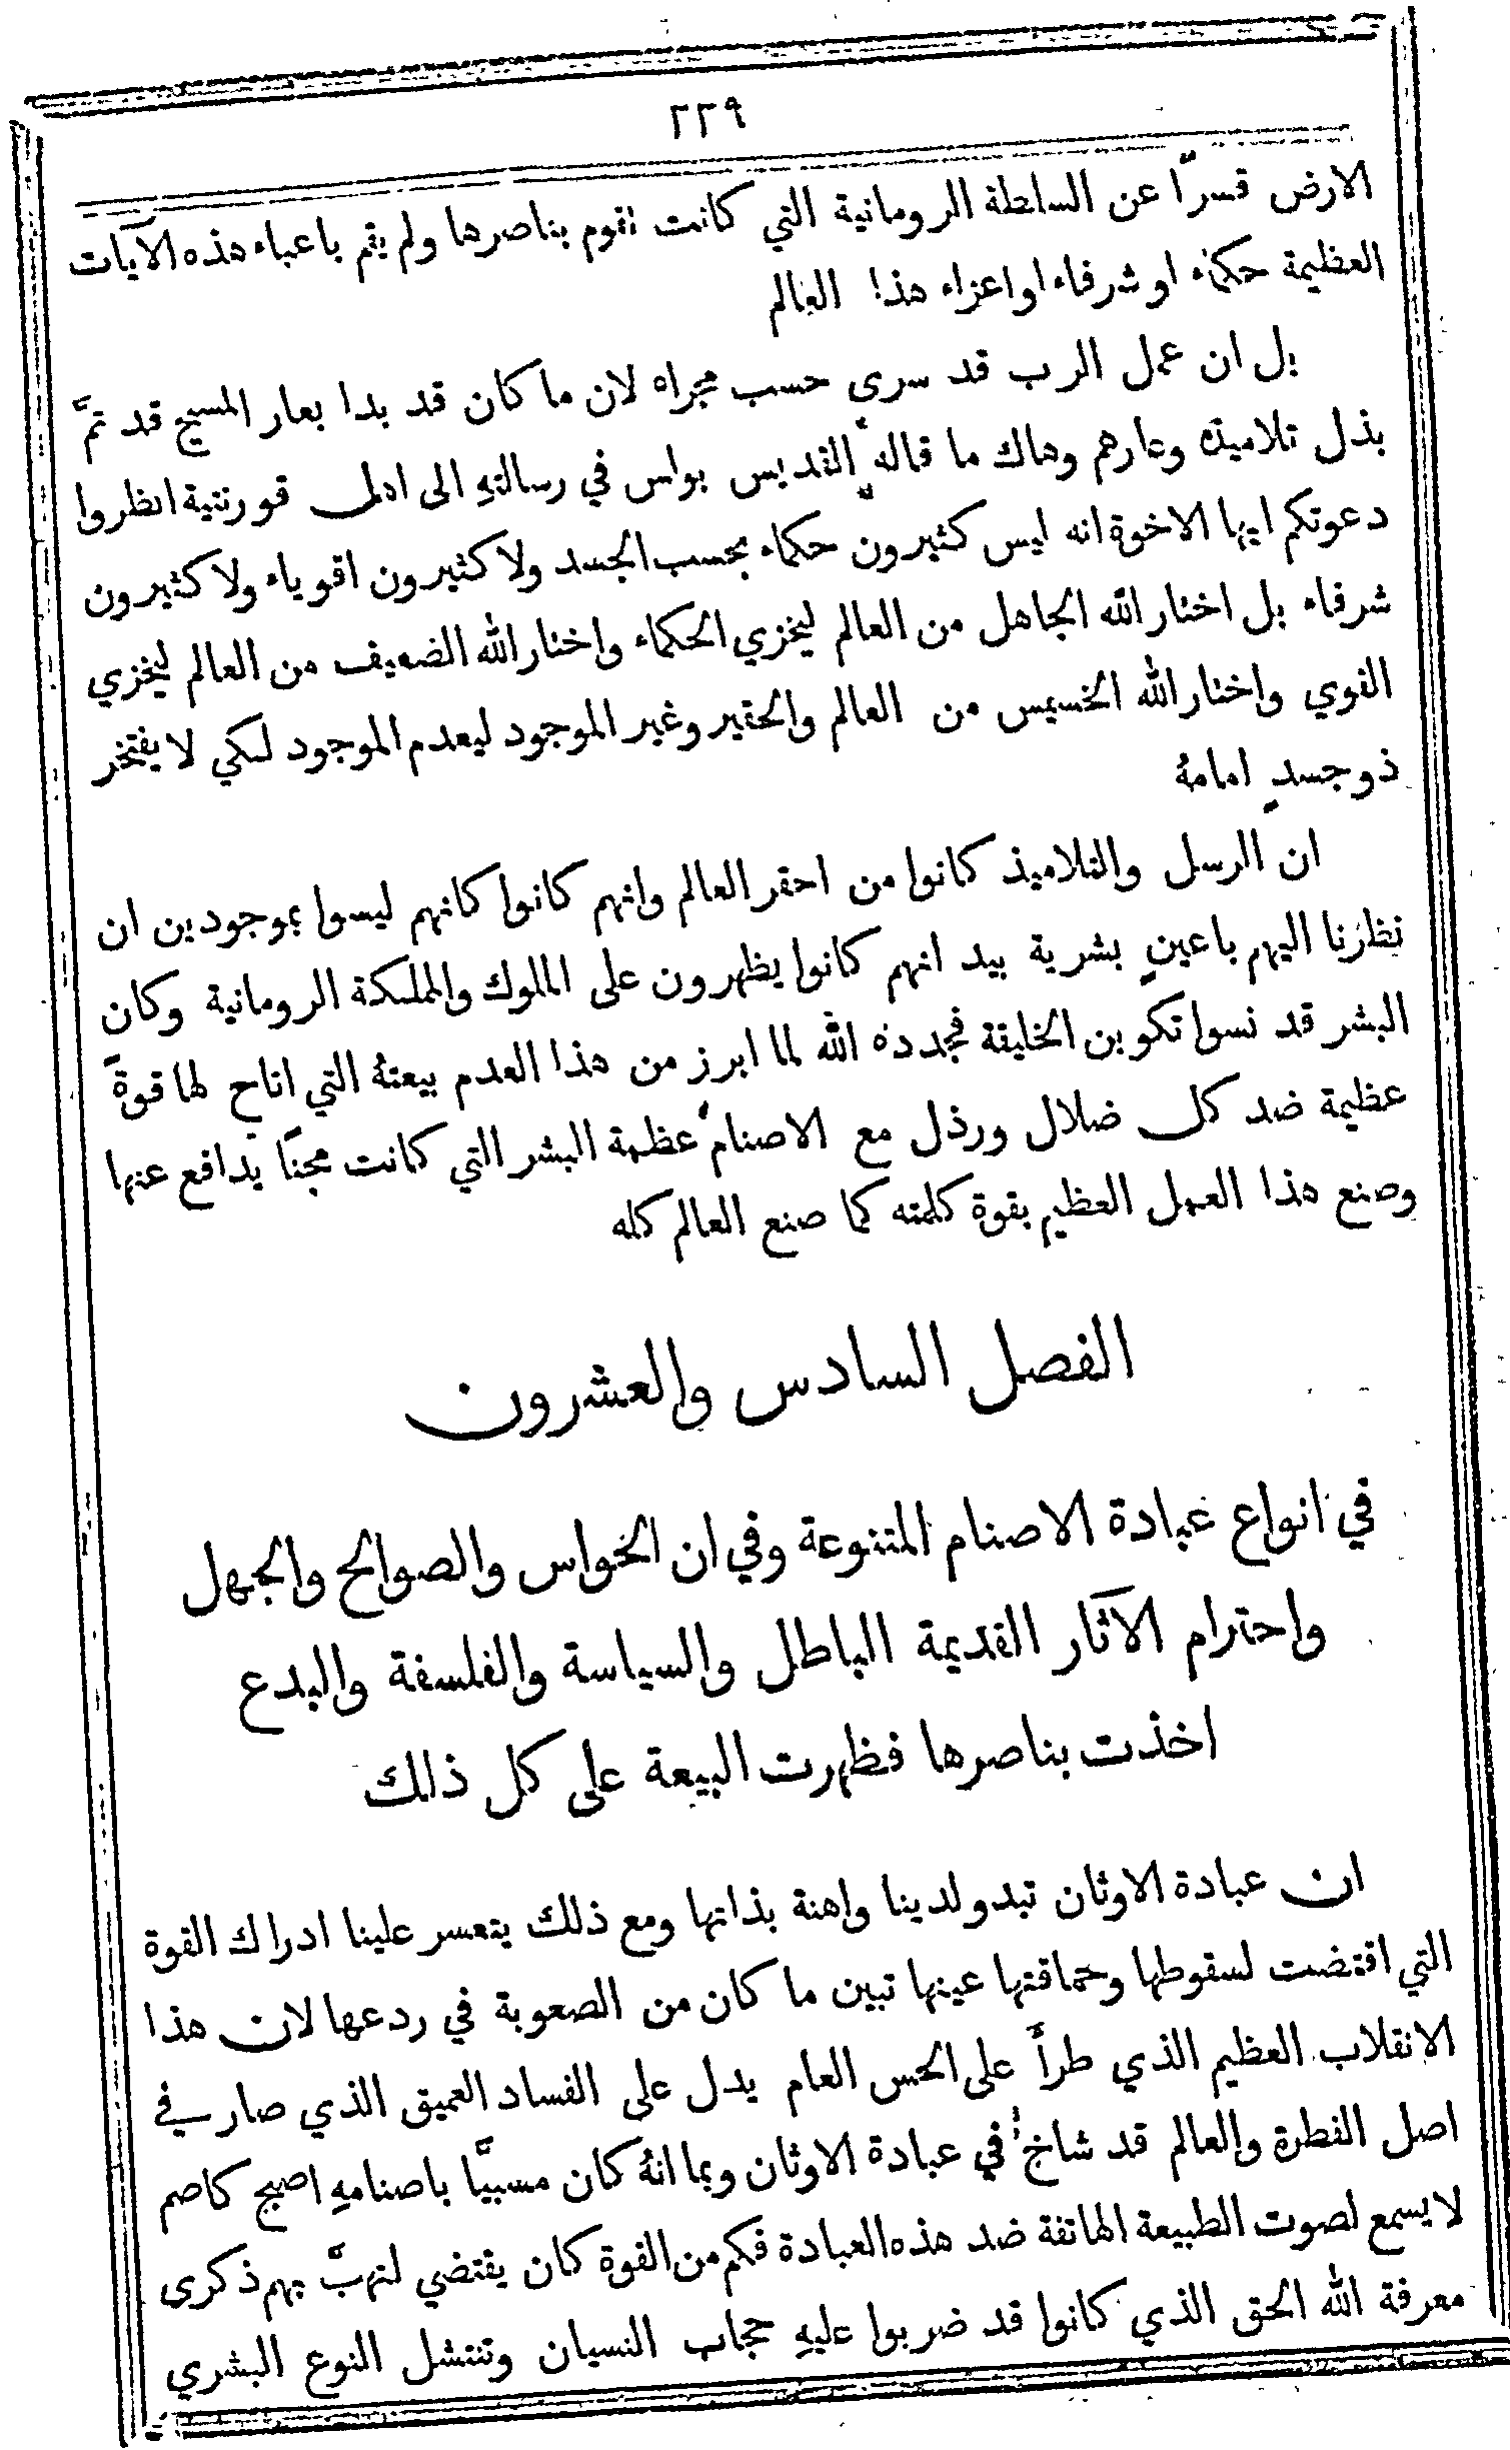 ٢٣٩
الارض قسرًّا عن السلطة الرومانية التي كانت تقوم بناصرها ولم يقم باعباء هذه الآيات
العظيمة حكماء او شرفاء او اعزاء هذا العالم
بل ان عمل الرب قد سرى حسب مجراه لان ما كان قد بدا بعار المسيح قد تمَّ
بذل تلاميذه وعارهم وهاك ما قاله القديس بولس في رسالتهِ الى اهل قورنثية انظروا
دعوتكم ايها الاخوة انه ليس كثيرون حكماء بحسب الجسد ولا كثيرون اقوياء ولا كثيرون
شرفاء بل اختار الله الجاهل من العالم ليخزي الحكماء واختار الله الضعيف من العالم ليخزي
القوي واختار الله الخسيس من العالم والحقير وغير الموجود ليعدم الموجود لكي لا يفتخر
ذو جسدٍ امامهُ
ان الرسل والتلاميذ كانوا من احقر العالم وانهم كانوا كانهم ليسوا بموجودين ان
نظرنا اليهم باعينٍ بشرية بيد انهم كانوا يظهرون على الملوك والمملكة الرومانية وكان
البشر قد نسوا تكوين الخليقة فجدده الله لما ابرز من هذا العدم بيعتهُ التي اتاح لها قوةً
عظيمة ضد كل ضلال ورذل مع الاصنام عظمة البشر التي كانت مجنًا يدافع عنها
وصنع هذا العمل العظيم بقوة كلمته كما صنع العالم كله
الفصل السادس والعشرون
في انواع عبادة الاصنام المتنوعة وفي ان الخواس والصوالح والجهل
واحترام الآثار القديمة الباطل والسياسة والفلسفة والبدع
اخذت بناصرها فظهرت البيعة على كل ذلك
ان عبادة الاوثان تبدو لدينا واهنة بذاتها ومع ذلك يتعسر علينا ادراك القوة
التي اقتضت لسقوطها وحماقتها عينها تبين ما كان من الصعوبة في ردعها لان هذا
الانقلاب العظيم الذي طرأَ على الحس العام يدل على الفساد العميق الذي صار في
اصل الفطرة والعالم قد شاخ في عبادة الاوثان وبما انهُ كان مسبيًّا باصنامهِ اصبح كاصم
لا يسمع لصوت الطبيعة الهاتفة ضد هذه العبادة فكم من القوة كان يقتضي لتهبَّ بهم ذكرى
معرفة الله الحق الذي كانوا قد ضربوا عليهِ حجاب النسيان وتنتشل النوع البشري